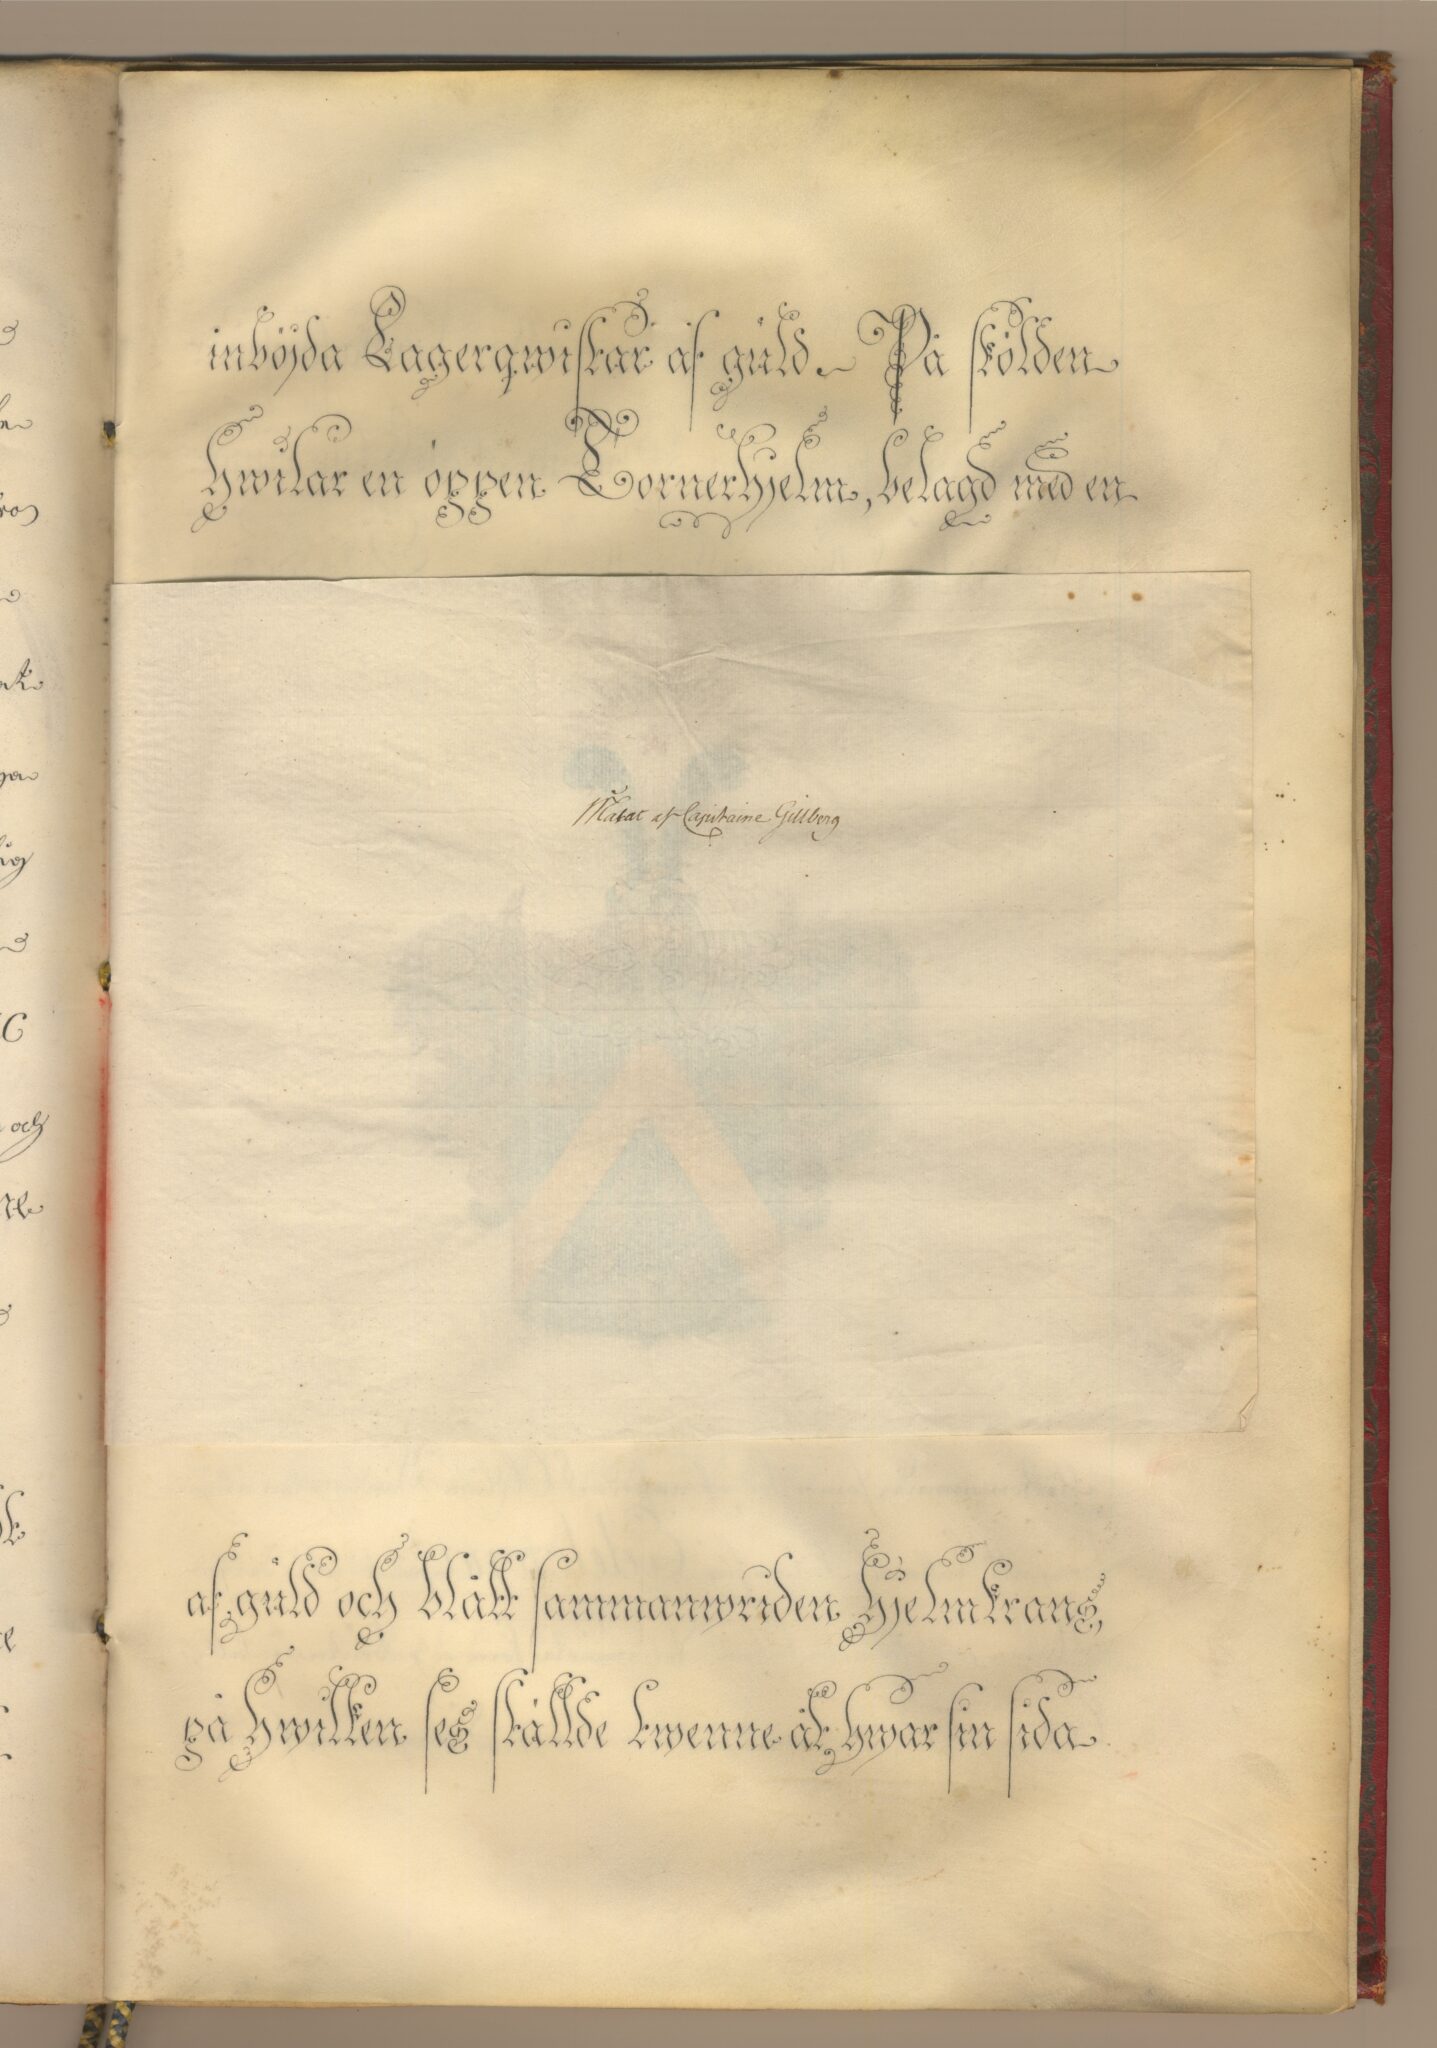 inböjda Lagerqwistar af guld. På skölden
hwilar en öppen Tornerhjelm, belagd med en
Målat af Capitaine Gillberg
af guld och blått sammanwriden hjelmkrans,
på hwilken ses stälde twenne åt hwar sin sida